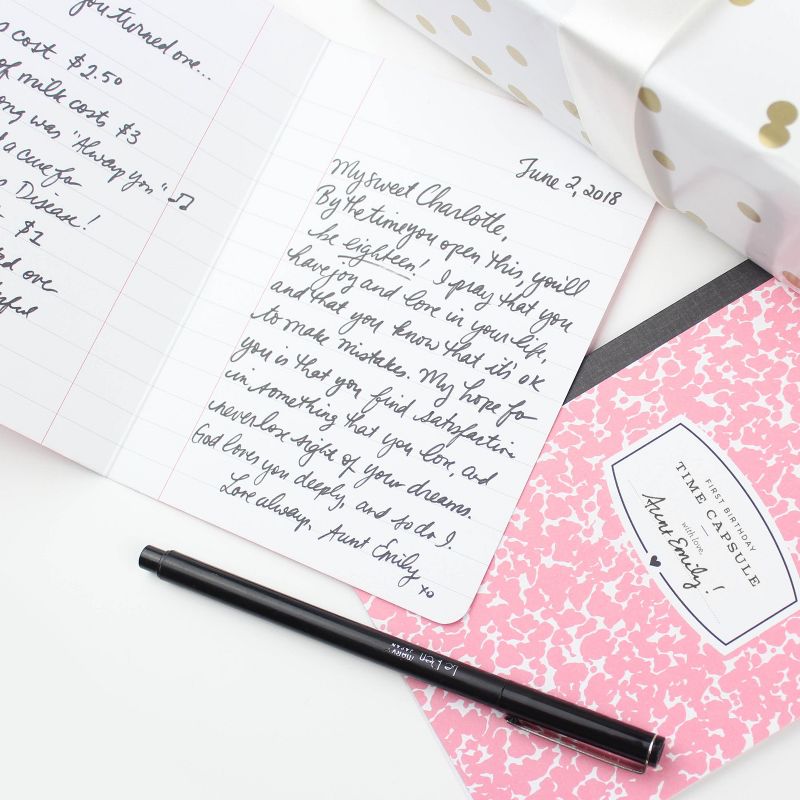 you turned one...
cost $2.50
of milk costs $3
song was "Always you"
a cure for
Disease!
$1
over
June 2, 2018
My sweet Charlotte,
By the time you open this, you'll
be eighteen! I pray that you
have joy and love in your life,
and that you know that it's ok
to make mistakes. My hope for
you is that you find satisfaction
in something that you love, and
never lose sight of your dreams.
God loves you deeply, and so do I.
Love always, Aunt Emily xo
FIRST BIRTHDAY
TIME CAPSULE
with love,
Aunt Emily!
Le Pen
MARVY
JAPAN